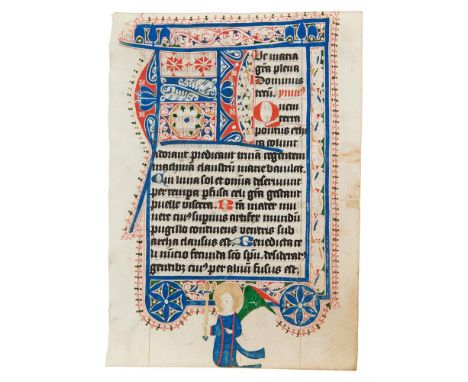 AVe maria
grā plena
Dominus
tecū. ymn⁹
Quem
terra
pontus ethe
ra colunt
adorant predicant trinā regentem
machinā claustrum marie baiulat.
Cui luna sol et om̄ia deseruiunt
per tempa pfusa celi grā gestant
puelle viscera. Btā mater mu
nere cui⁹ supnus artifex mundū
pugillo continens ventris sub
archa clausus est. Benedicta ce
li nūcio fecunda sco spū. desiderat⁹
gentibz cui⁹ per aluū fusus est.